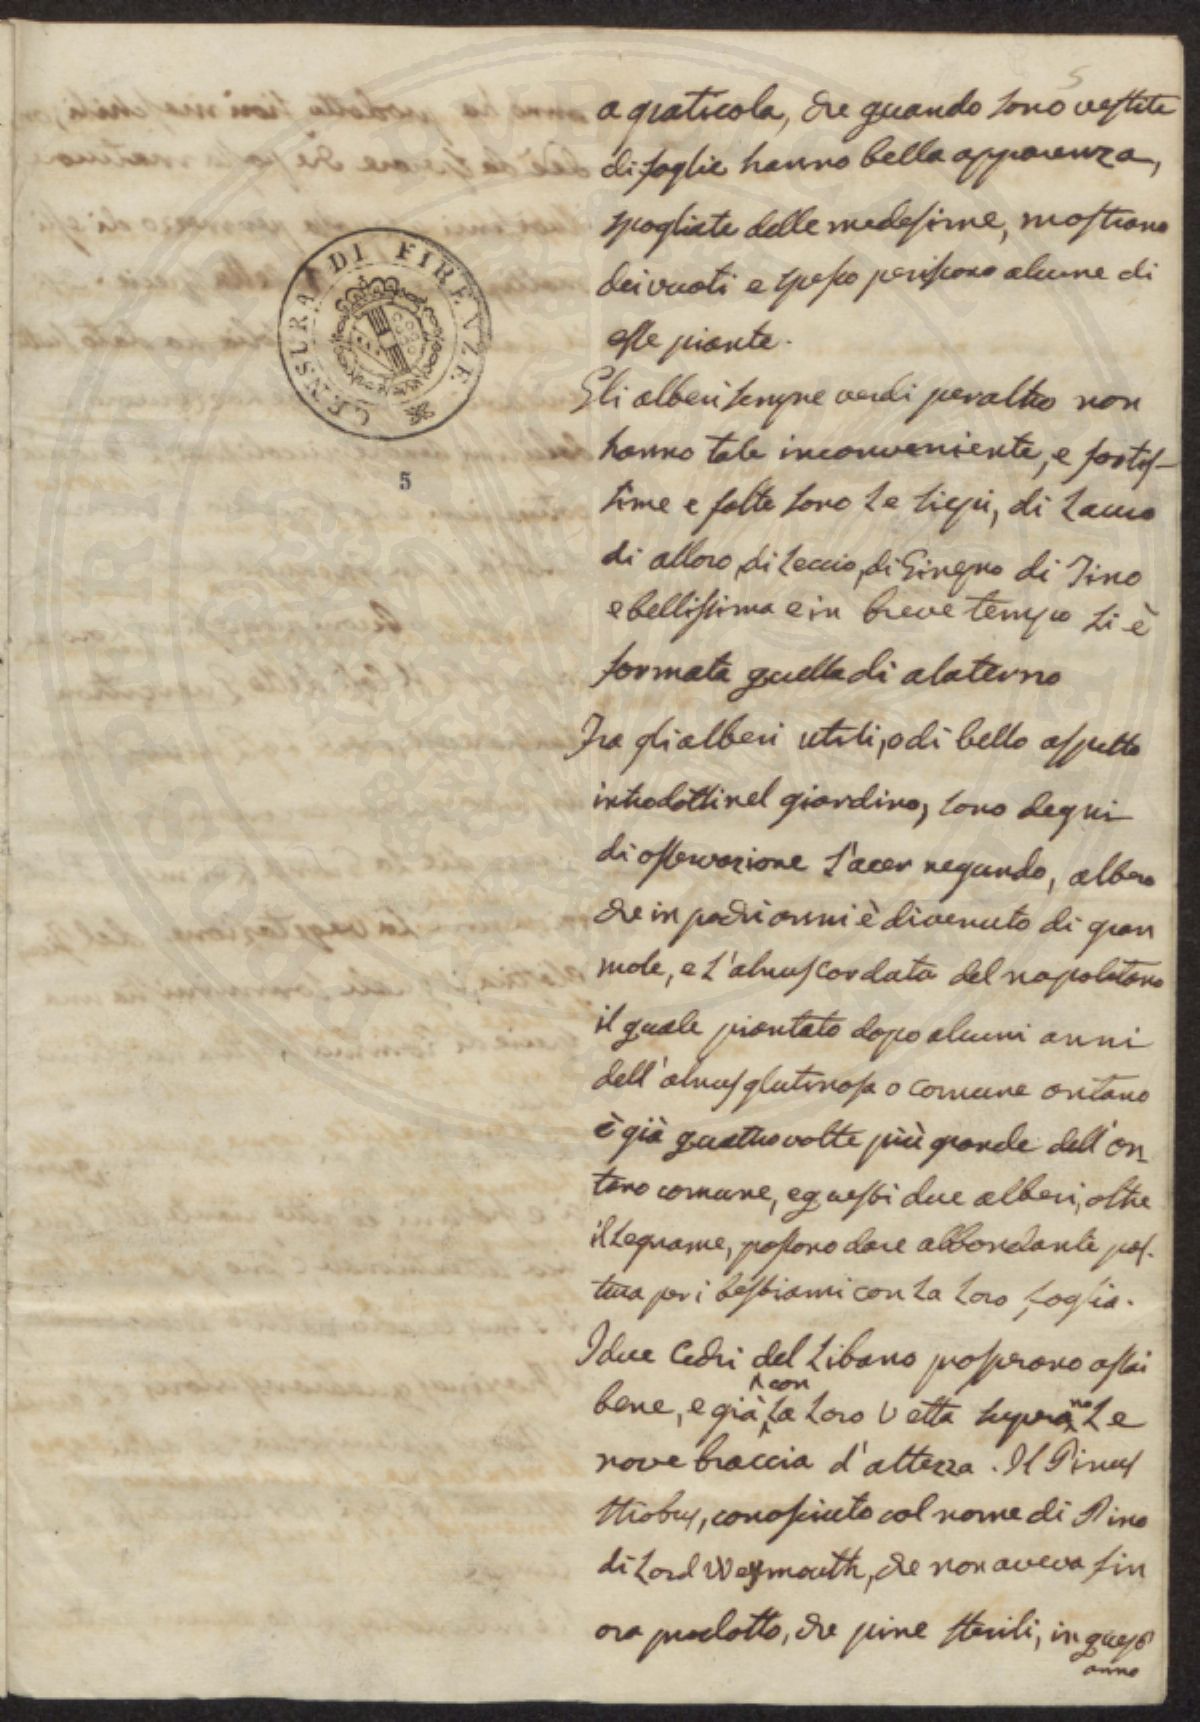 5
a graticola, che quando sono vestite
di foglie hanno bella apparenza,
spogliate dalle medesime, mostrano
dei vuoti e spesso periscono alcune di
esse piante.
Gli alberi sempre verdi peraltro non
hanno tale inconveniente, e fortis-
sime e folte sono le siepi, di Lauro
di alloro, di Leccio, di Ginepro di Tino
e bellissima e in breve tempo si è
formata quella di alaterno
Tra gli alberi utili, o di bello aspetto
introdotti nel giardino, sono degni
di osservazione l'acer negundo, albero
che in pochi anni è divenuto di gran
mole, e l'alnus cordata del napoletano
il quale piantato dopo alcuni anni
dell'alnus glutinosa o comune ontano
è già quattro volte più grande dell'on-
tano comune, e questi due alberi, oltre
il legname, possono dare abbondante pas-
tura per i bestiami con la loro foglia.
I due Cedri del Libano prosperano assai
bene, e già con la loro vetta superano le
nove braccia d'altezza. Il Pinus
strobus, conosciuto col nome di Pino
di Lord Weymouth, che non aveva fin
ora prodotto, che pine sterili, in quest'
anno
CENSURA DI FIREVZE
5